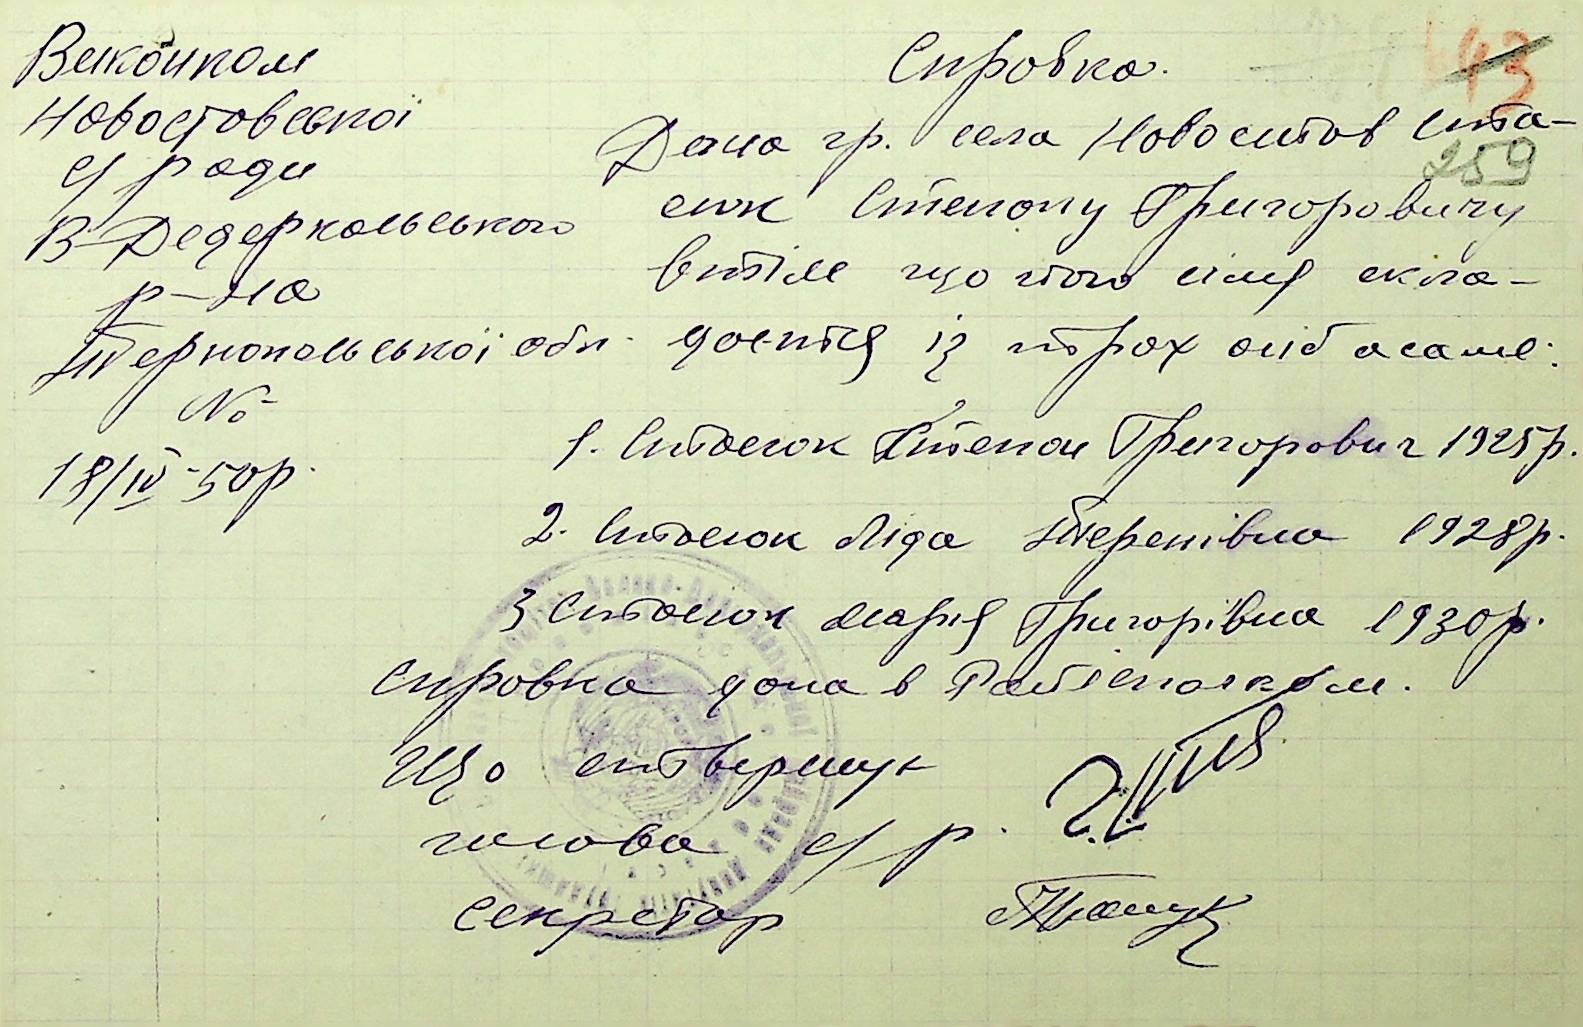 Виконком
Новоставської
с/ ради
В-Дедеркальського
р-на
Тернопольської обл.
№
18/IV-50р.
43
259
Справка.
Дана гр. села Новостав Ста-
сюк Степану Григоровичу
втім що його сімя скла-
даєтся із трох осіб асаме:
1. Стасюк Степан Григорович 1925р.
2. Стасюк Ліда Терентівна 1928р.
3 Стасюк Марія Григорівна 1930р.
Справка дана в Райвенком.
Що ствержую
голова с/р.
секретар